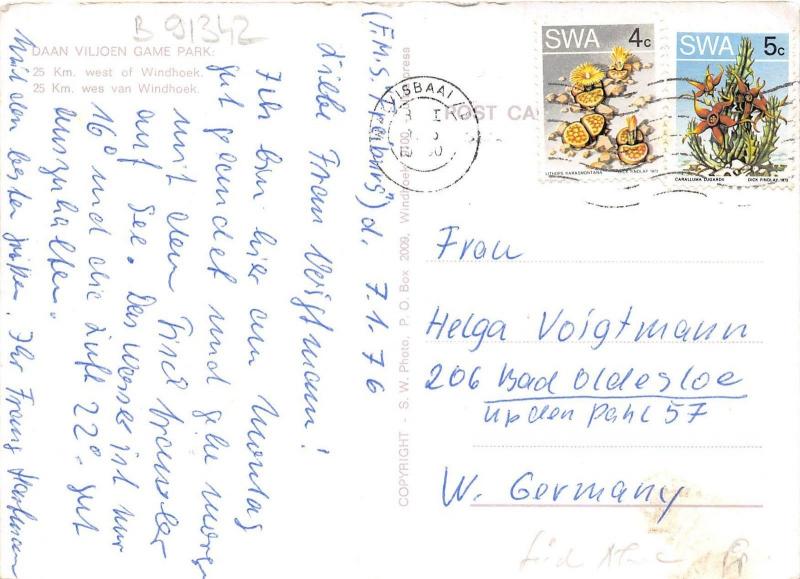 B 91342
DAAN VILJOEN GAME PARK:
25 Km. west of Windhoek.
25 Km. wes van Windhoek.
(F.M.S. "Freiburg") d. 7.1.76
Liebe Frau Voigtmann!
Ich bin hier am Montag
gut gelandet und gehe morgen
mit dem Fischtrawler
auf See. Das Wasser ist nur
16° und die Luft 22° - gut
auszuhalten.
Mit den besten Grüßen, Ihr Franz
COPYRIGHT - S. W. Photo, P. O. Box 2009, Windhoek
POST CA
VISBAAI
SWA 4c
LITHOPS KARASMONTANA DICK FINDLAY 1973
SWA 5c
CARALLUMA LUGARDII DICK FINDLAY 1973
Frau
Helga Voigtmann
206 Bad Oldesloe
Up den Pahl 57
W. Germany